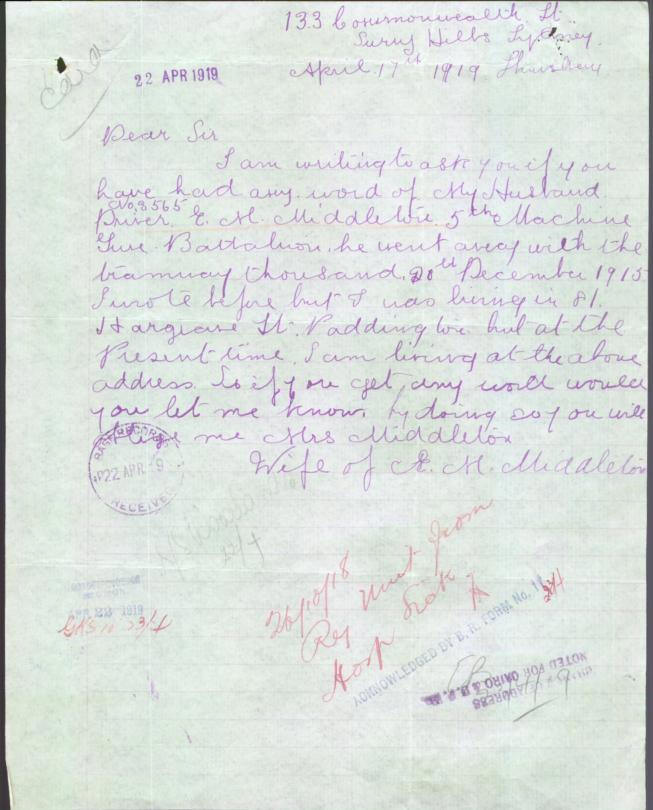 133 Commonwealth St
Surry Hills Sydney
card
22 APR 1919
April 17th 1919 Thursday
Dear Sir
I am writing to ask you if you
have had any word of My Husband
No. 8565
Driver E. H. Middleton 5th Machine
Gun Battalion. he went away with the
tramway thousand. 20th December 1915
I wrote before but I was living in 81.
Hargrave St. Paddington but at the
Present time I am living at the above
address So if you get any word would
you let me know, by doing so you will
oblige me Mrs Middleton
Wife of E. H. Middleton
BASE RECORDS
22 APR 9
RECEIVED
22/4
26/10/18
Rej Unit from
Hosp Sick
APR 22 1919
23/4
ACKNOWLEDGED BY B. R. FORM No. 11
23/4
ADDRESS
NOTED FOR